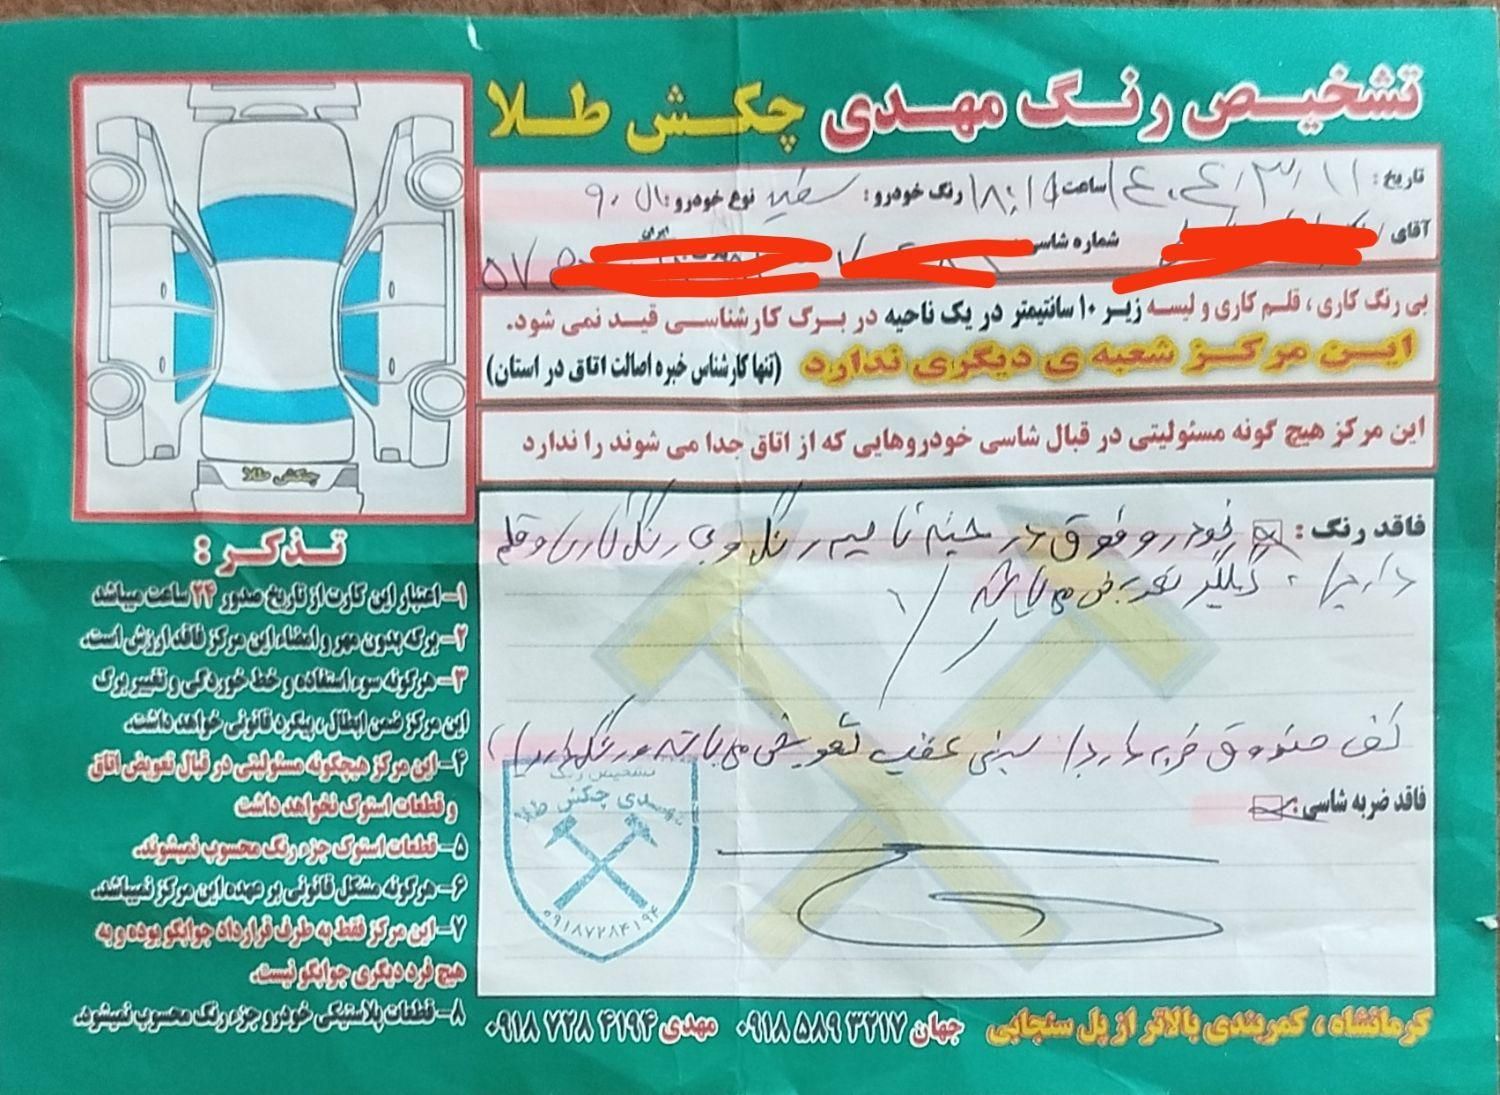 تشخیص رنگ مهدی چکش طلا
تاریخ: ۱۴۰۴/۳/۱۱ ساعت ۱۸:۱۶ رنگ خودرو: سفید نوع خودرو: ال ۹۰
آقای شماره شاسی ایران
بی رنگ کاری ، قلم کاری و لیسه زیر ۱۰ سانتیمتر در یک ناحیه در برگ کارشناسی قید نمی شود.
این مرکز شعبه ی دیگری ندارد (تنها کارشناس خبره اصالت اتاق در استان)
این مرکز هیچ گونه مسئولیتی در قبال شاسی خودروهایی که از اتاق جدا می شوند را ندارد
فاقد رنگ: خودرو فوق در چند ناحیه رنگ و بی رنگ کاری و قلم
دارد. گلگیر تعویض می باشد
کف صندوق ضربه دارد سینی عقب تعویض می باشد و رنگ دارد
فاقد ضربه شاسی:
تشخیص رنگ
مهدی چکش طلا
۰۹۱۸۷۲۸۴۱۹۴
چکش طلا
تذکر:
۱- اعتبار این کارت از تاریخ صدور ۲۴ ساعت میباشد
۲- برگه بدون مهر و امضاء این مرکز فاقد ارزش است.
۳- هرگونه سوء استفاده و خط خوردگی و تغییر برگ
این مرکز ضمن ابطال ، پیگرد قانونی خواهد داشت.
۴- این مرکز هیچگونه مسئولیتی در قبال تعویض اتاق
و قطعات استوک نخواهد داشت
۵- قطعات استوک جزء رنگ محسوب نمیشوند.
۶- هرگونه مشکل قانونی بر عهده این مرکز نمیباشد.
۷- این مرکز فقط به طرف قرارداد جوابگو بوده و به
هیچ فرد دیگری جوابگو نیست.
۸- قطعات پلاستیکی خودرو جزء رنگ محسوب نمیشود.
کرمانشاه ، کمربندی بالاتر از پل سنجابی جهان ۰۹۱۸ ۵۸۹ ۳۲۱۷ مهدی ۰۹۱۸ ۷۲۸ ۴۱۹۴